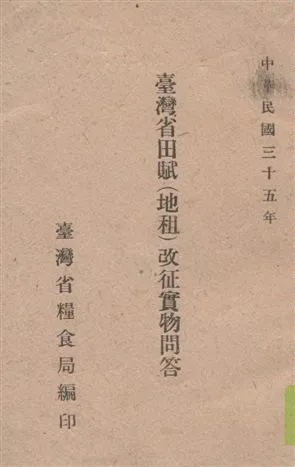 中華民國三十五年
臺灣省田賦(地租)改征實物問答
臺灣省糧食局編印